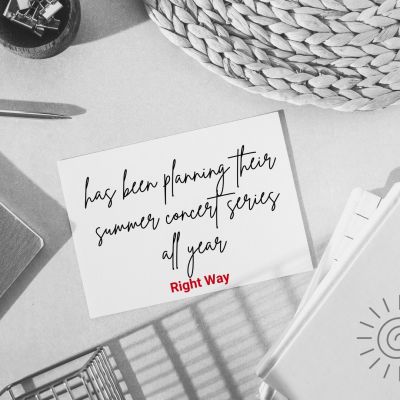 has been planning their
summer concert series
all year
Right Way